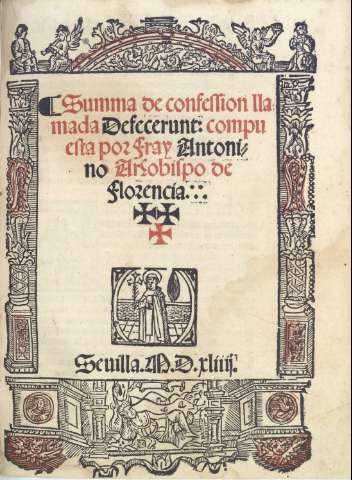 ¶ Summa de confession lla
mada Defecerunt: compu
esta por fray Antoni-
no Arçobispo de
florencia.·.·.
Sevilla. M.D.xliiij.